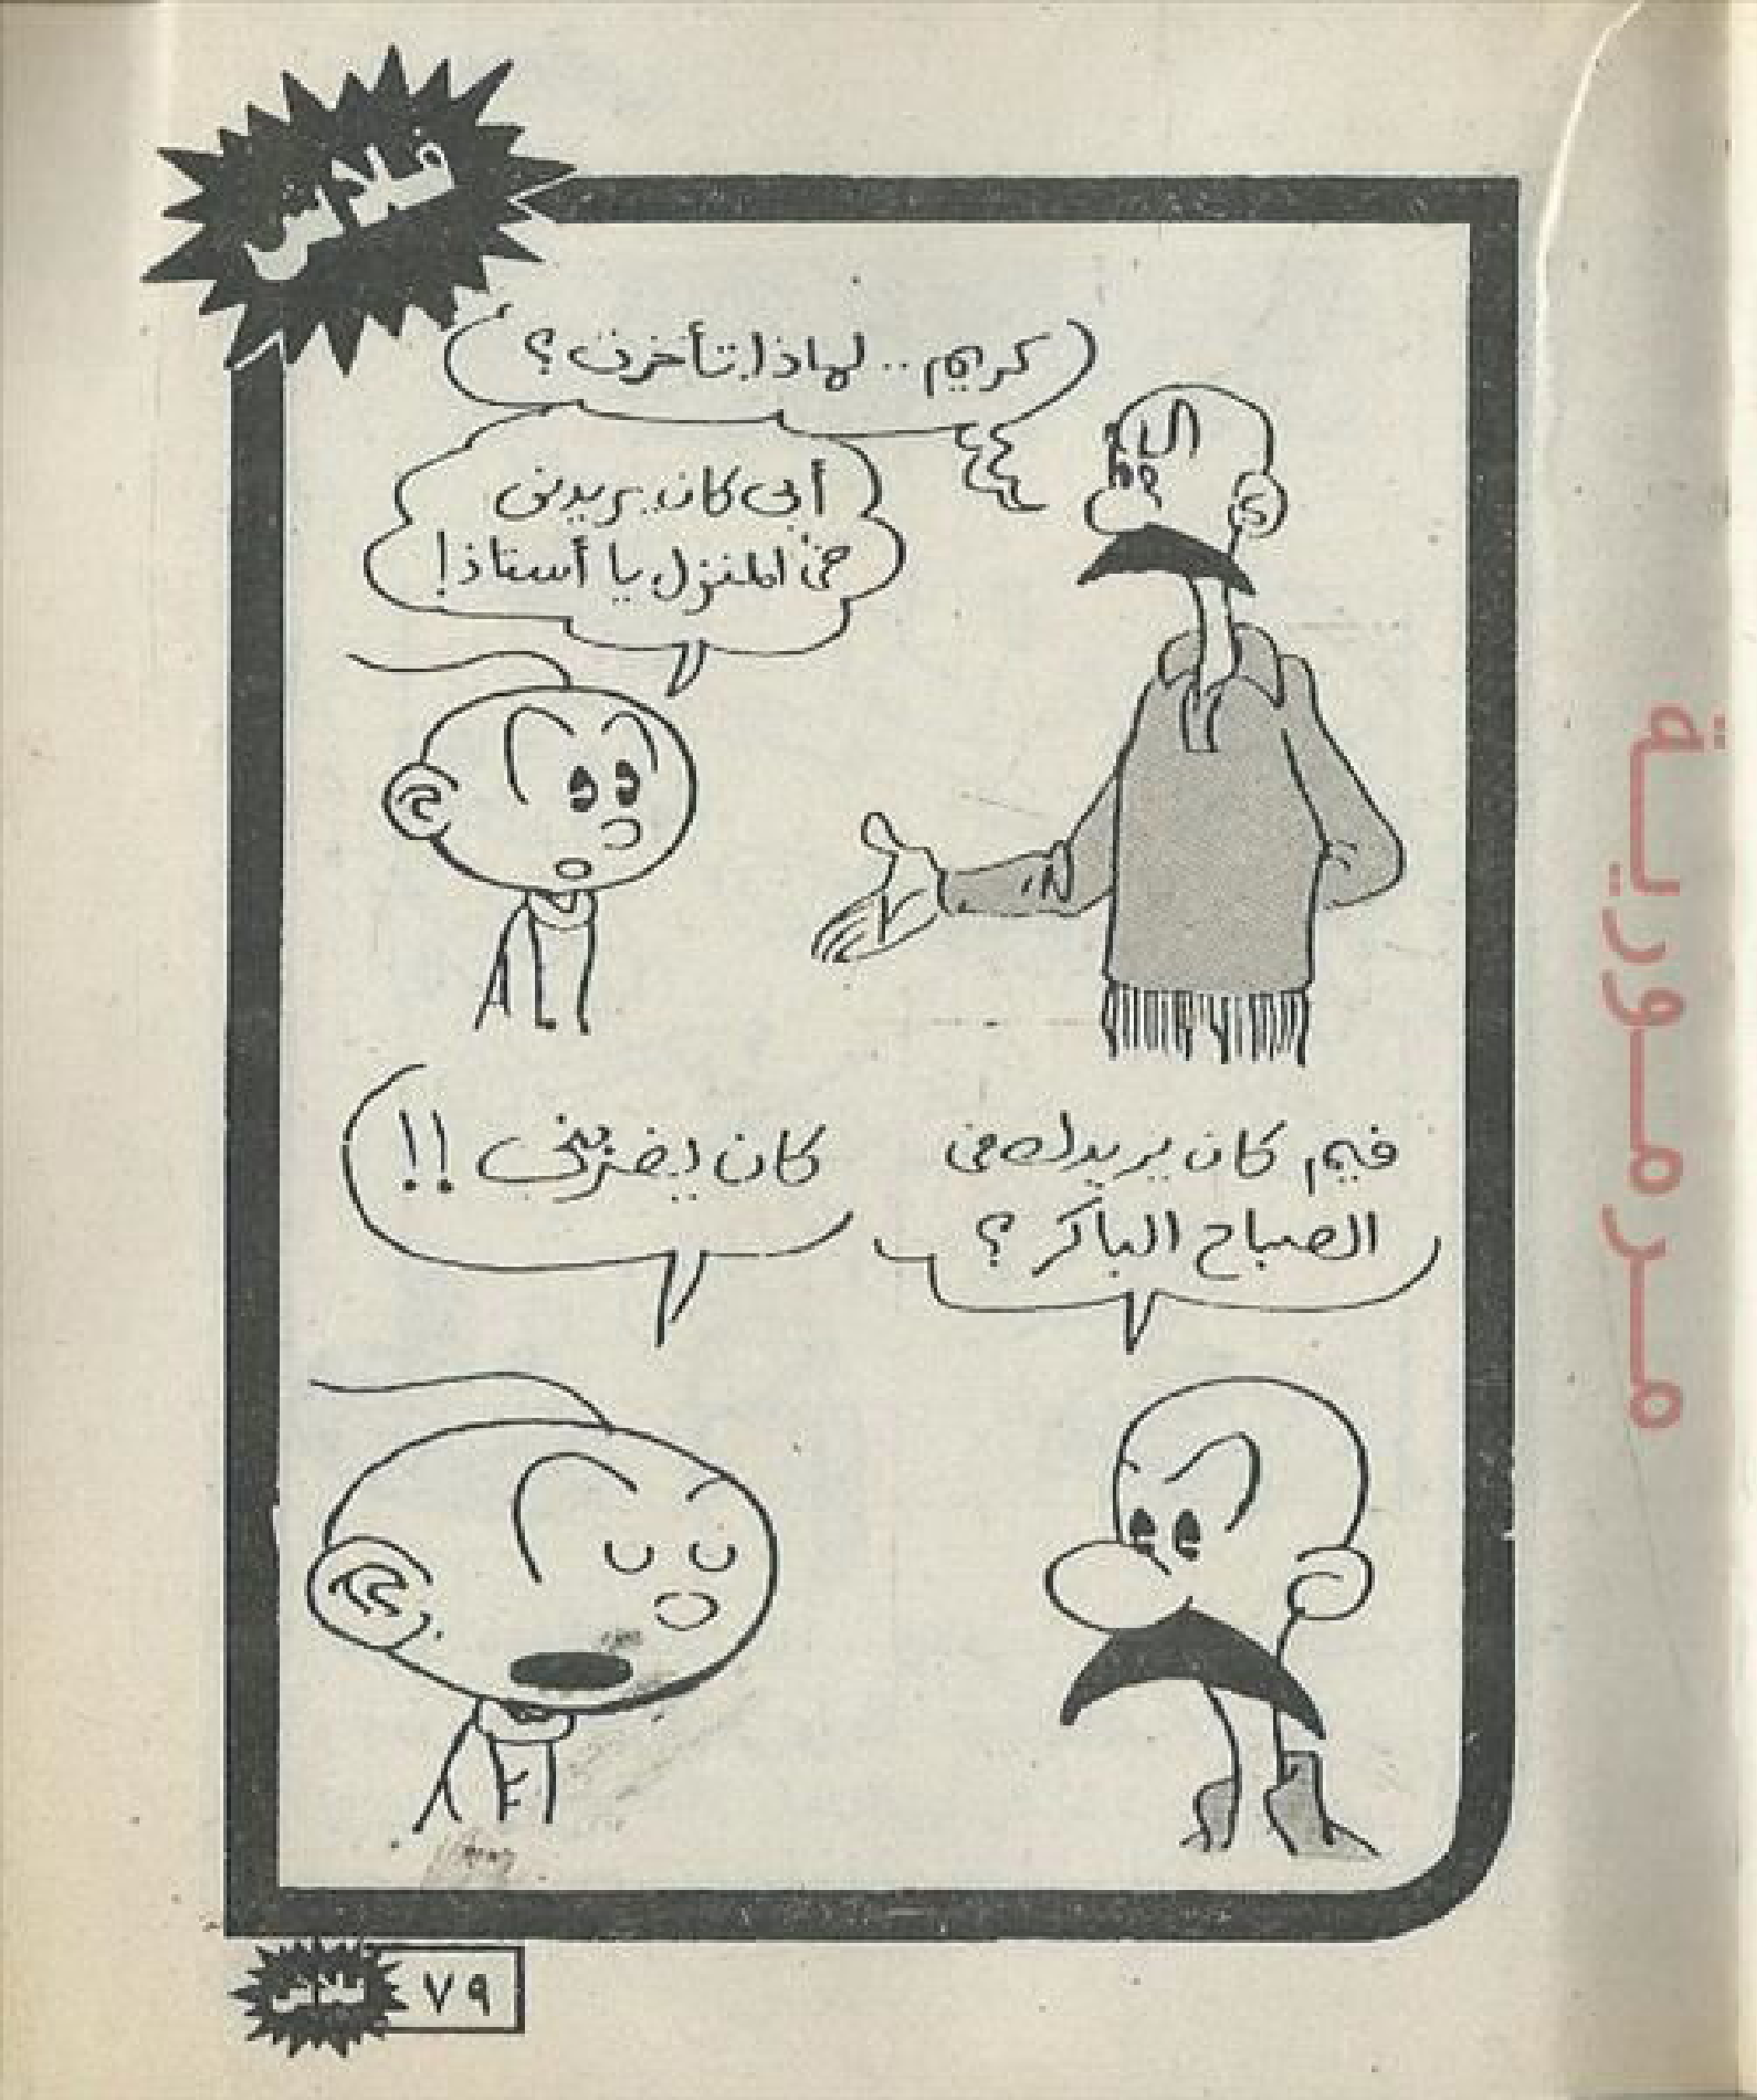 فلاش
كريم.. لماذا تأخرت؟
أبى كان يريدنى
فى المنزل يا أستاذ!
فيم كان يريدك فى
الصباح الباكر؟
كان يضربنى!!
مرمورية
فلاش ٧٩